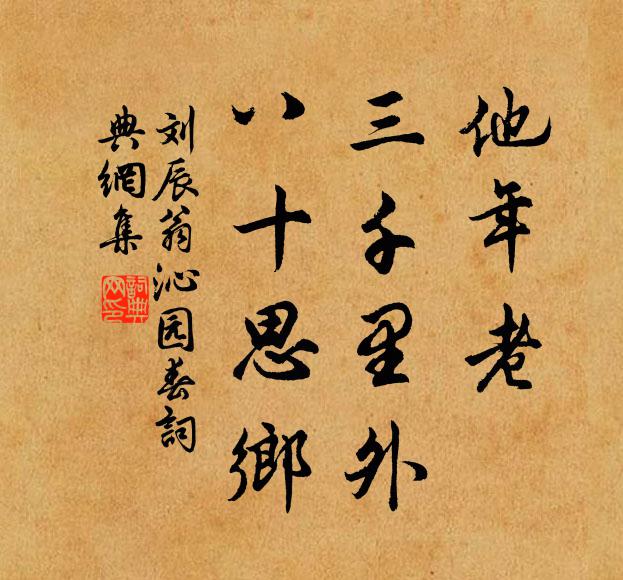 他年老
三千里外
八十思鄉
刘辰翁沁园春詞
典網集
詞典网印